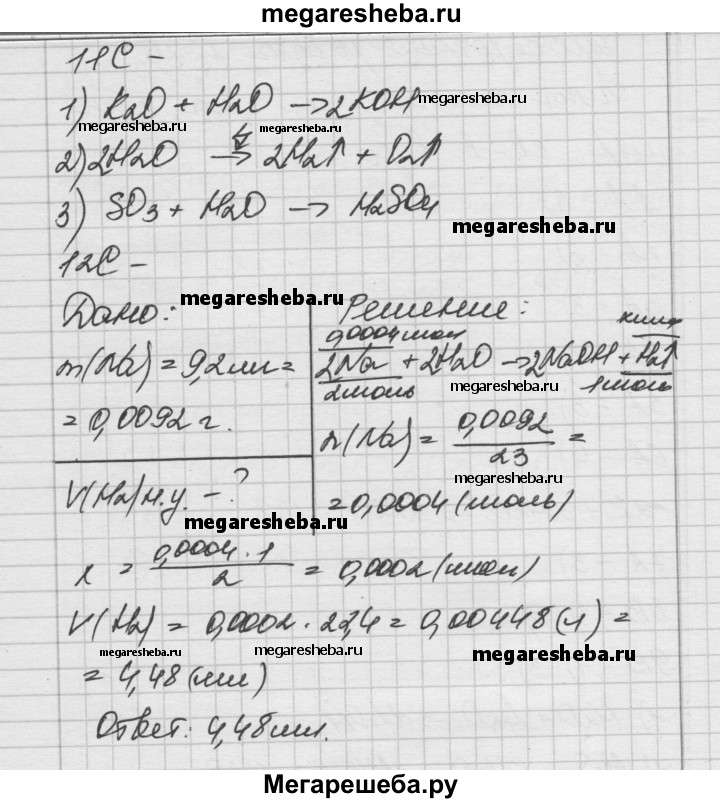 megaresheba.ru
11С –
1) K2O + H2O → 2KOH megaresheba.ru
megaresheba.ru megaresheba.ru
2) 2H2O → 2H2↑ + O2↑
3) SO3 + H2O → H2SO4
megaresheba.ru
12С –
Дано:
megaresheba.ru
m(Na) = 9,2 мг =
= 0,0092 г.
V(H2) н.у. – ?
Решение:
0,0004 моль x моль
2Na + 2H2O → 2NaOH + H2↑
2 моль megaresheba.ru 1 моль
n(Na) = 0,0092 / 23 =
megaresheba.ru
= 0,0004 (моль)
megaresheba.ru
x = 0,0004 · 1 / 2 = 0,0002 (моль)
V(H2) = 0,0002 · 22,4 = 0,00448 (л) =
megaresheba.ru megaresheba.ru megaresheba.ru
= 4,48 (мл)
Ответ: 4,48 мл.
Мегарешеба.ру